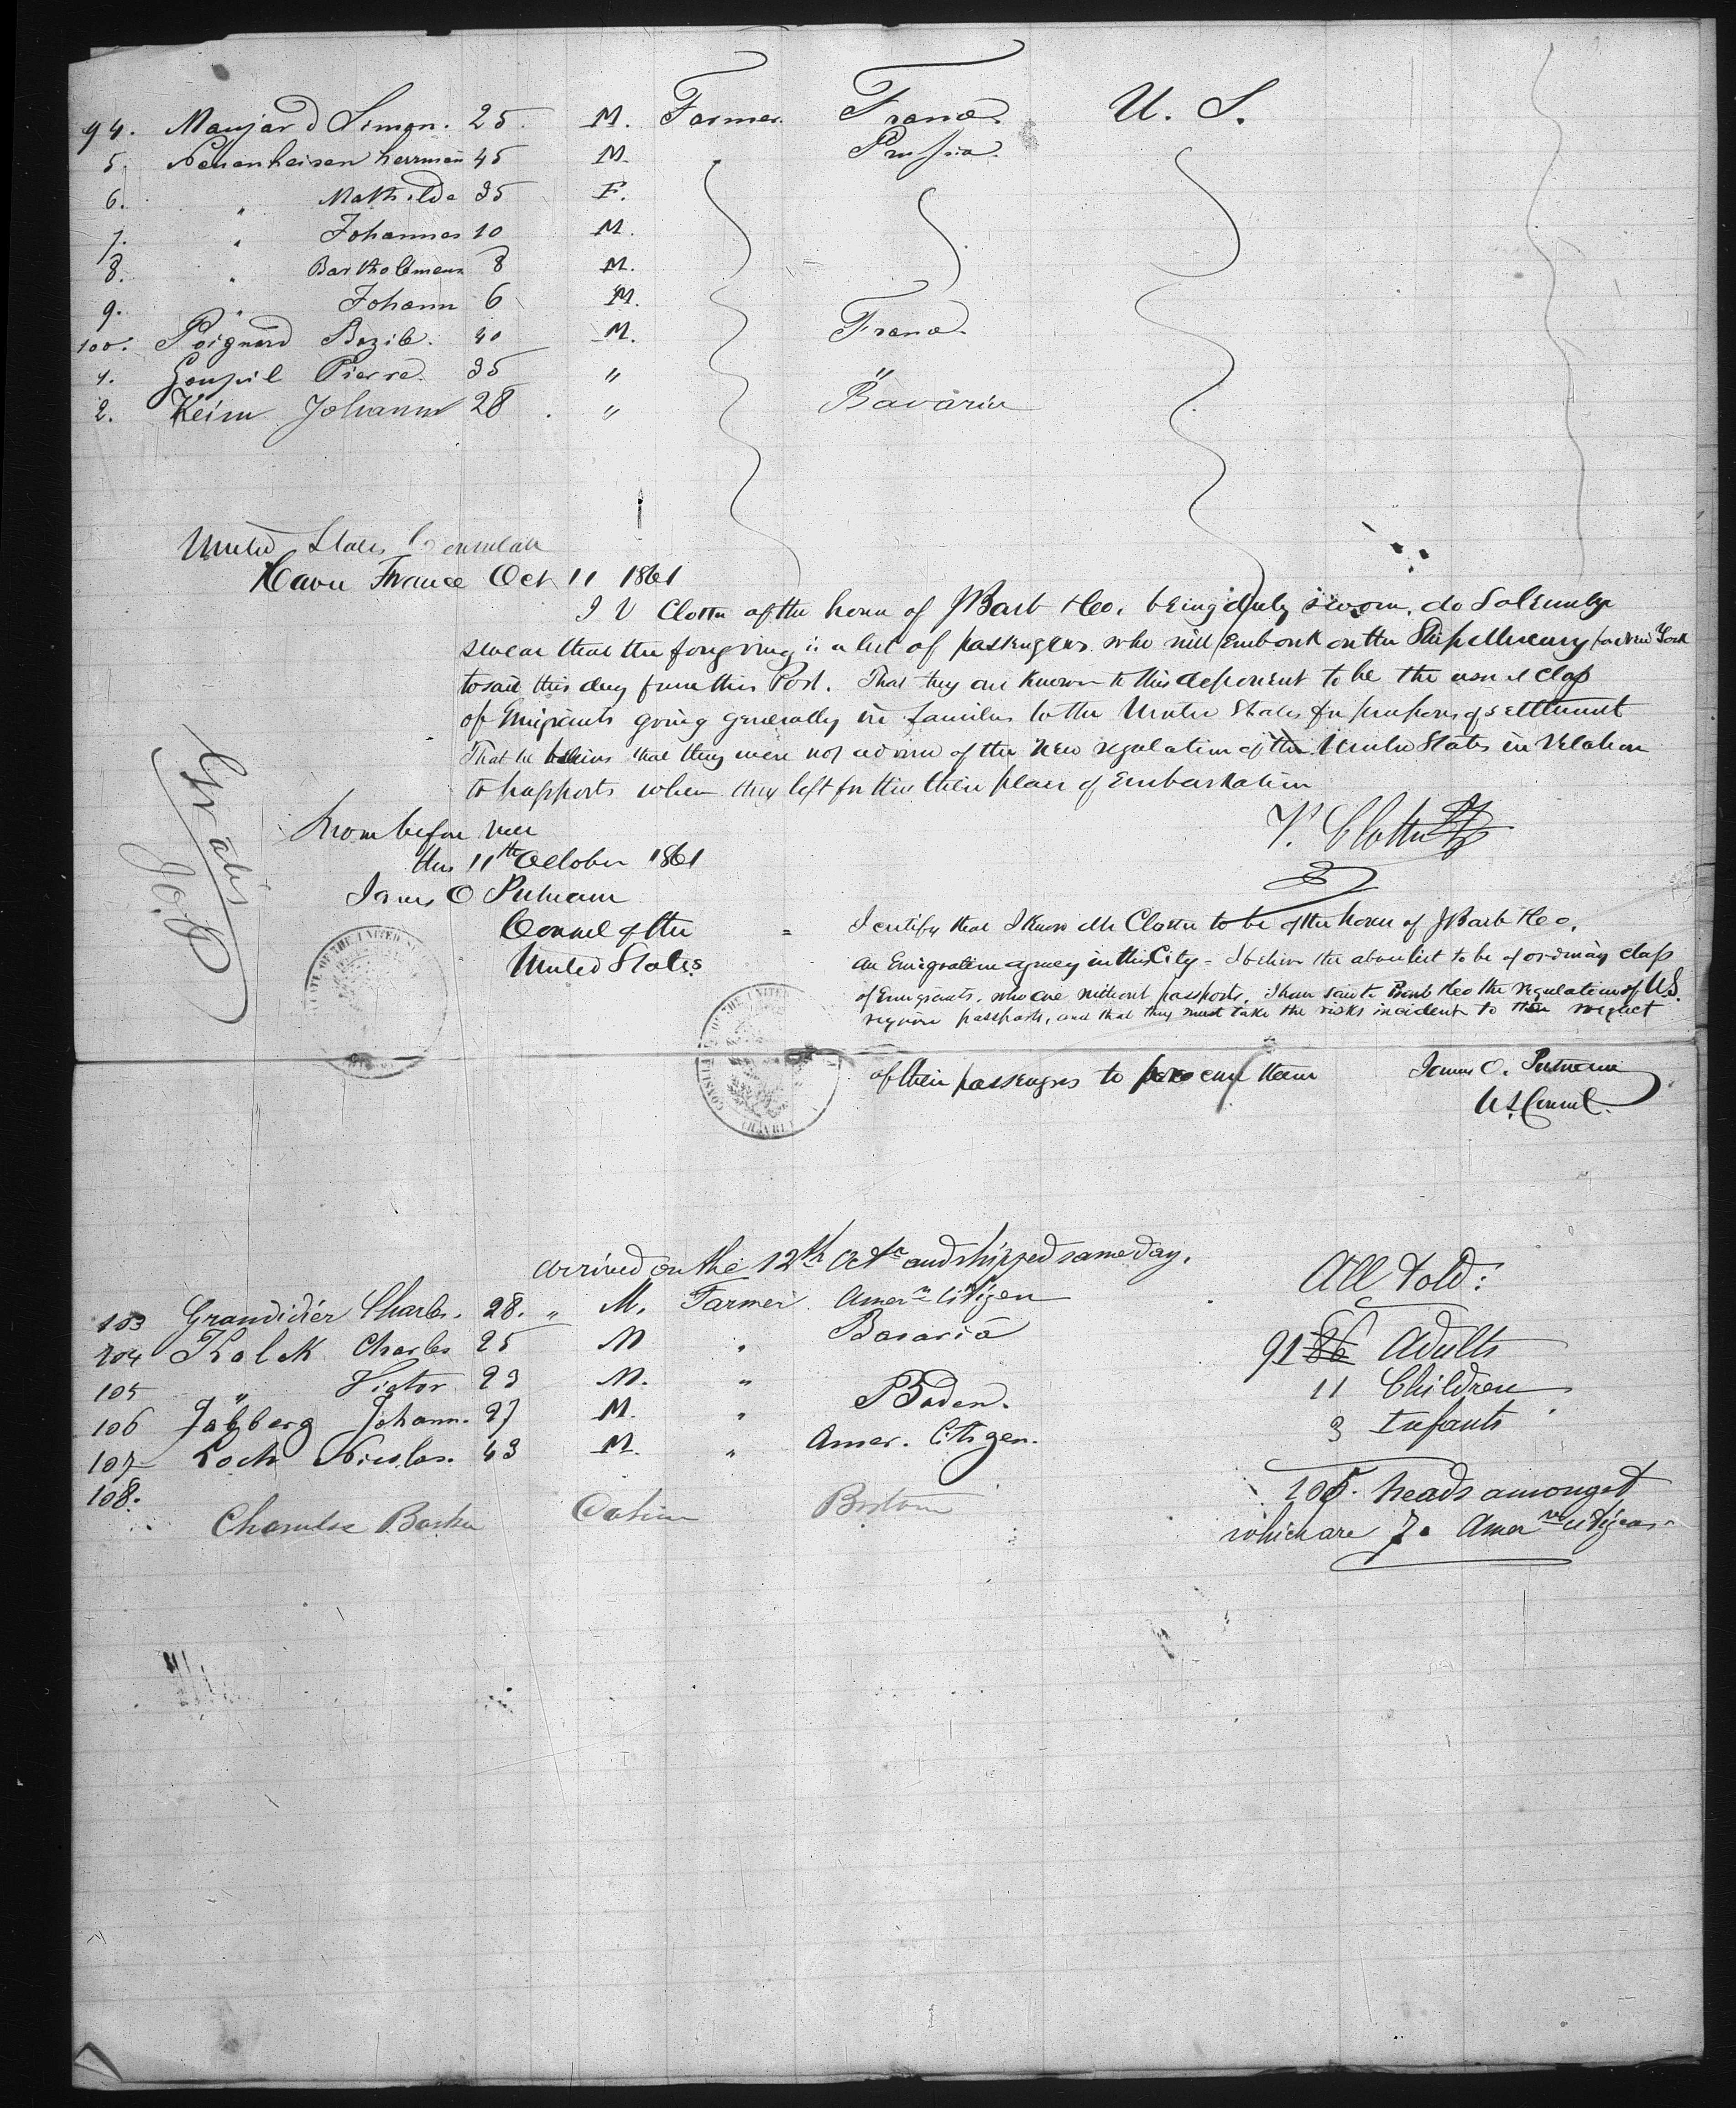 94. Manjard Simon. 25. M. Farmer. France. U. S.
5. Neuenheisen herrmann 45 M. " Prussia.
6. " Mathilde 35 F.
7. " Johannes 10 M.
8. " Bartholomeus 8 M.
9. " Johann 6 M.
100. Poignard Bazile. 40 M. France.
1. Goupil Pierre. 35 " "
2. Keim Johann 28 " Bavaria
United States Consulate
Havre France Oct 11 1861
I V Clottu of the house of J Barb & Co. being duly sworn, do Solemnly
swear that the foregoing is a list of passengers who will Embark on the Ship Mercury for New York
to sail this day from this Port. That they are Known to this deponent to be the usual Class
of Emigrants going generally in families to the United States for purposes of settlement
That he believes that they were not advised of the new regulation of the United States in relation
to passports when they left for this their place of Embarkation
V. Clottu
Sworn before me
this 11th October 1861
James O Putnam
Consul of the
United States
Gratis
J.O.P
I certify that I Know Mr Clottu to be of the house of J Barb & Co.
an Emigration agency in this City - I believe the above list to be of ordinary class
of Emigrants, who are without passports. I have said to Barb & Co the regulations of U.S.
require passports, and that they must take the risks incident to the neglect
of their passengers to procure them
James O. Putnam
U.S. Consul.
CONSULATE OF THE UNITED STATES
(HAVRE)
arrived on the 12th Octr and shipped same day.
103 Grandidier Charles. 28. " M. Farmer Amern Citizen
104 Kolck Charles 25 M " Bavaria
105 " Victor 23 M. "
106 Jalzberg Johann. 27 M. " Baden.
107 Koch Nicolas. 43 M. " Amer. Citizen.
108. Charles Barker Cabin Boston
All told:
91 86 Adults
11 Children
3 Infants
105. heads amongst
which are 7. Amern citizens